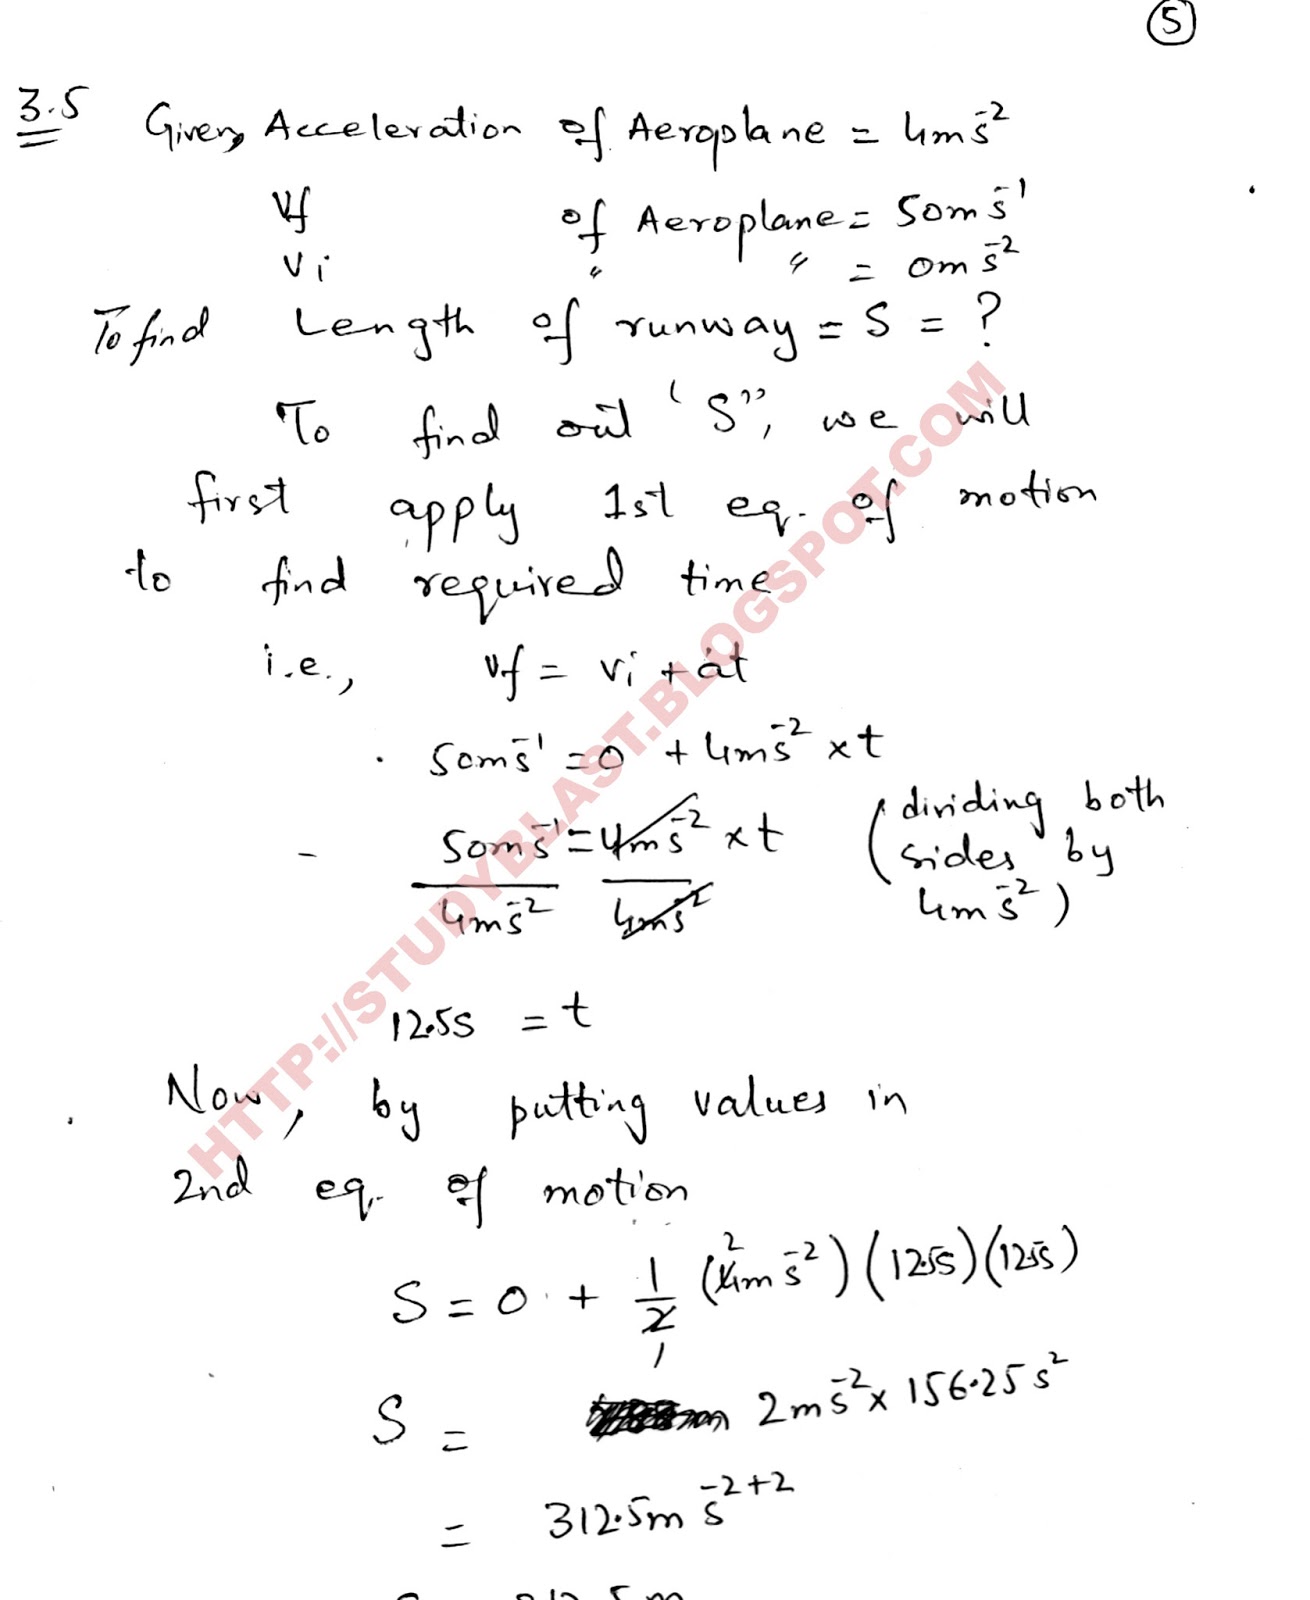 5
3.5 Given, Acceleration of Aeroplane = 4ms⁻²
Vf of Aeroplane = 50ms⁻¹
Vi " " = 0ms⁻²
To find Length of runway = S = ?
To find out 'S", we will
first apply 1st eq. of motion
to find required time
i.e., vf = vi + at
50ms⁻¹ = 0 + 4ms⁻² x t
50ms⁻¹ = 4ms⁻² x t (dividing both
4ms⁻² 4ms⁻² sides by
4ms⁻²)
12.5s = t
Now, by putting values in
2nd eq. of motion
S = 0 + 1/2 (4ms⁻²) (12.5s) (12.5s)
2
1
S = 2ms⁻² x 156.25s²
= 312.5m s⁻²⁺²
S = 312.5m
HTTP://STUDYBLAST.BLOGSPOT.COM